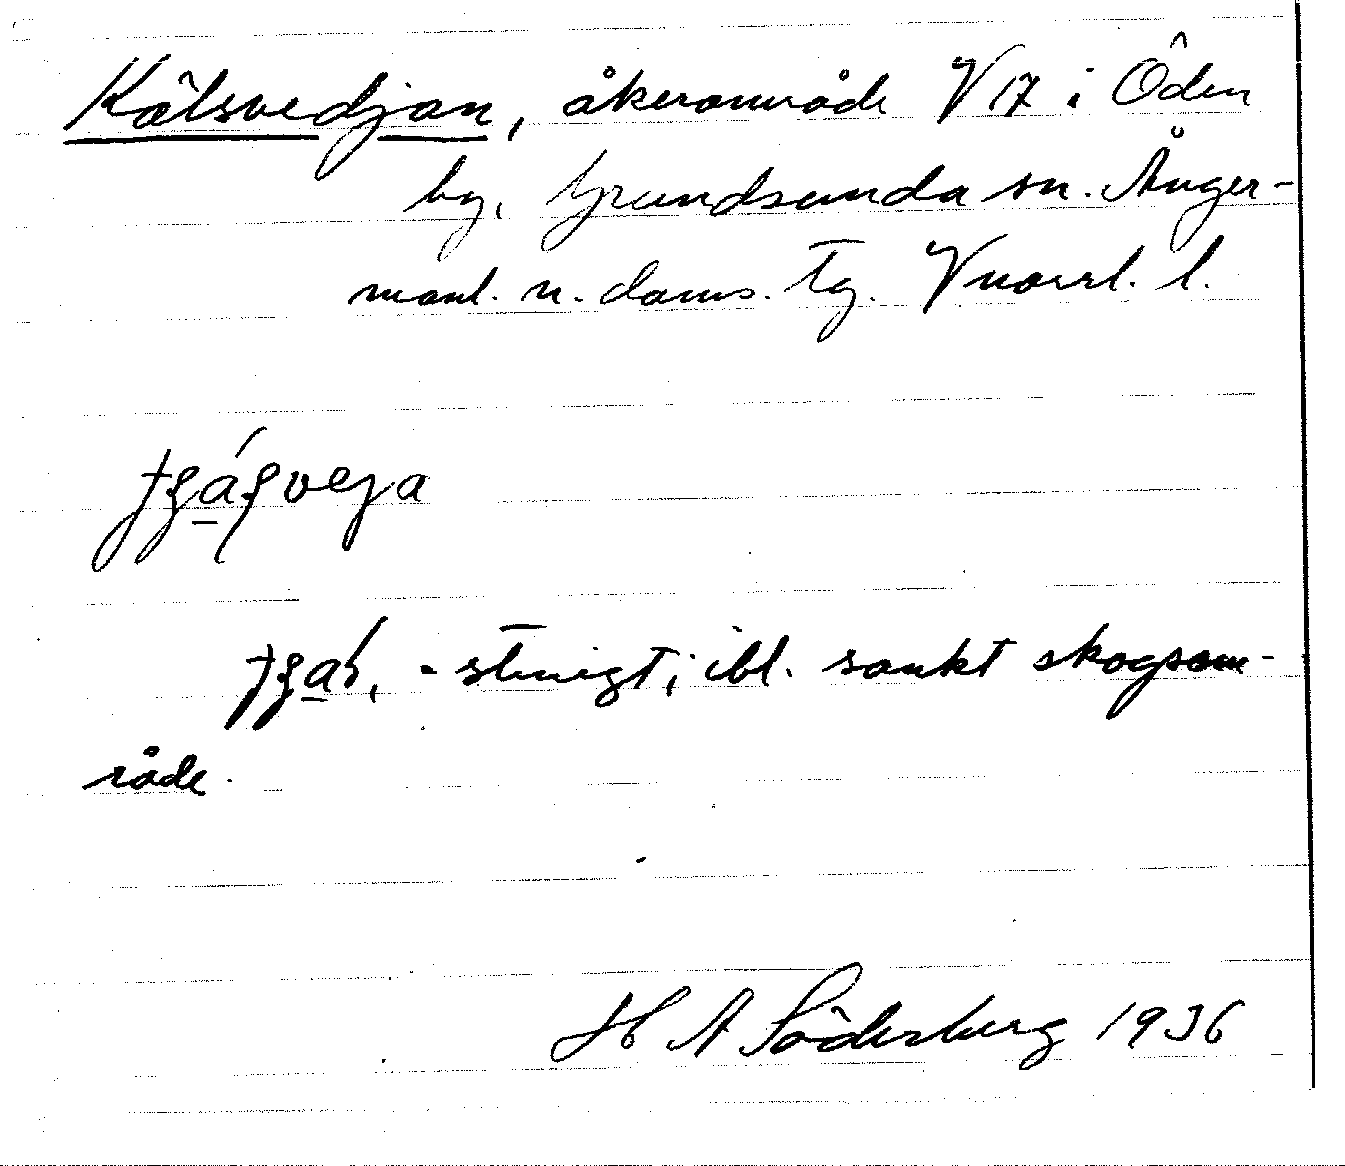 Kölsvedjan, åkerområde V 17 i Öden
by, Grundsunda sn. Ånger-
manl. n. doms. Tg. Vnorrl. l.
steinigt, ibl. sankt skogsom-
råde.
H A Söderberg 1936